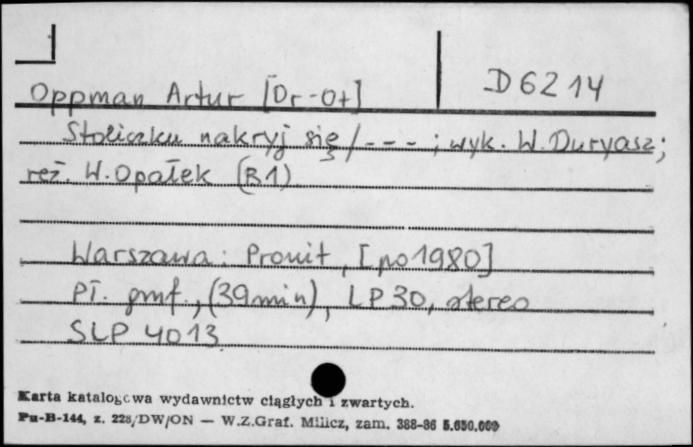 Oppman Artur [Or-Ot]
D 6214
Stoliczku nakryj się / - - - ; wyk. W. Duryasz;
reż. W. Opałek (R1)
Warszawa: Pronit, [po 1980]
Pł. gmf., (39 min), LP 30, stereo
SLP 4013
Karta katalogowa wydawnictw ciągłych i zwartych.
Pu-B-144, z. 228/DW/ON — W.Z.Graf. Milicz, zam. 388-86 5.650.000